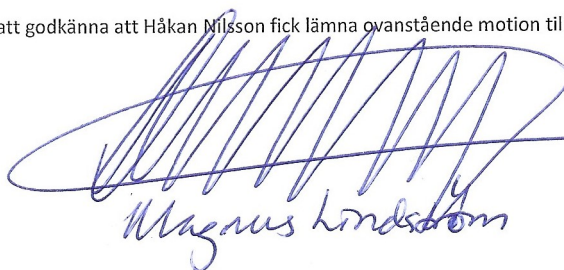 att godkänna att Håkan Nilsson fick lämna ovanstående motion til
Magnus Lindström